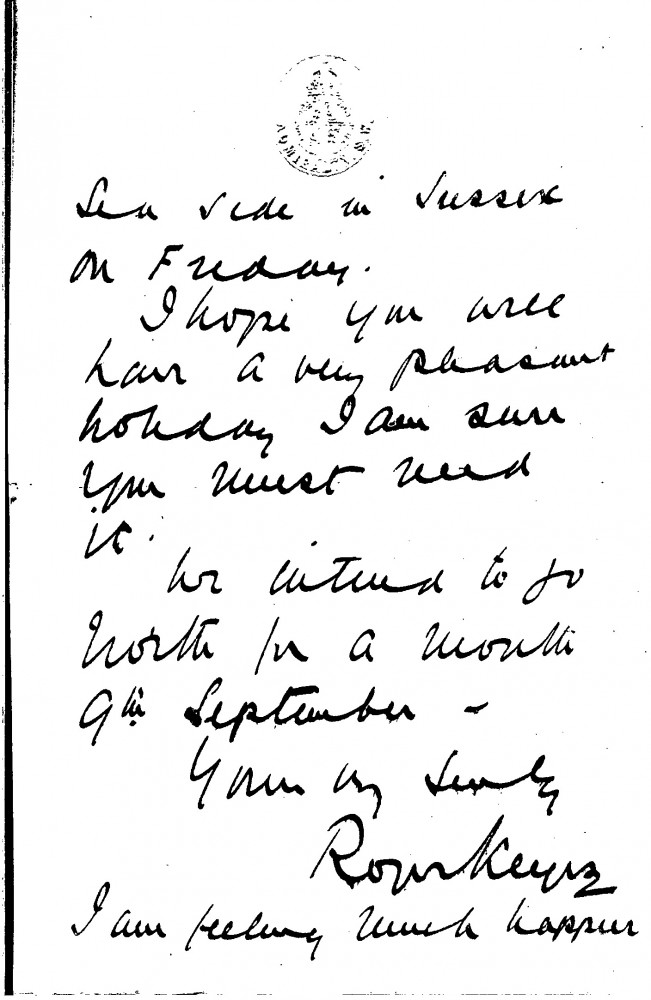 ADMIRALTY S.W.
Sea side in Sussex
on Friday.
I hope you will
have a very pleasant
holiday I am sure
you must need
it.
We intend to go
North for a month
9th September -
Yours very sincerely
Roger Keyes
I am feeling much happier